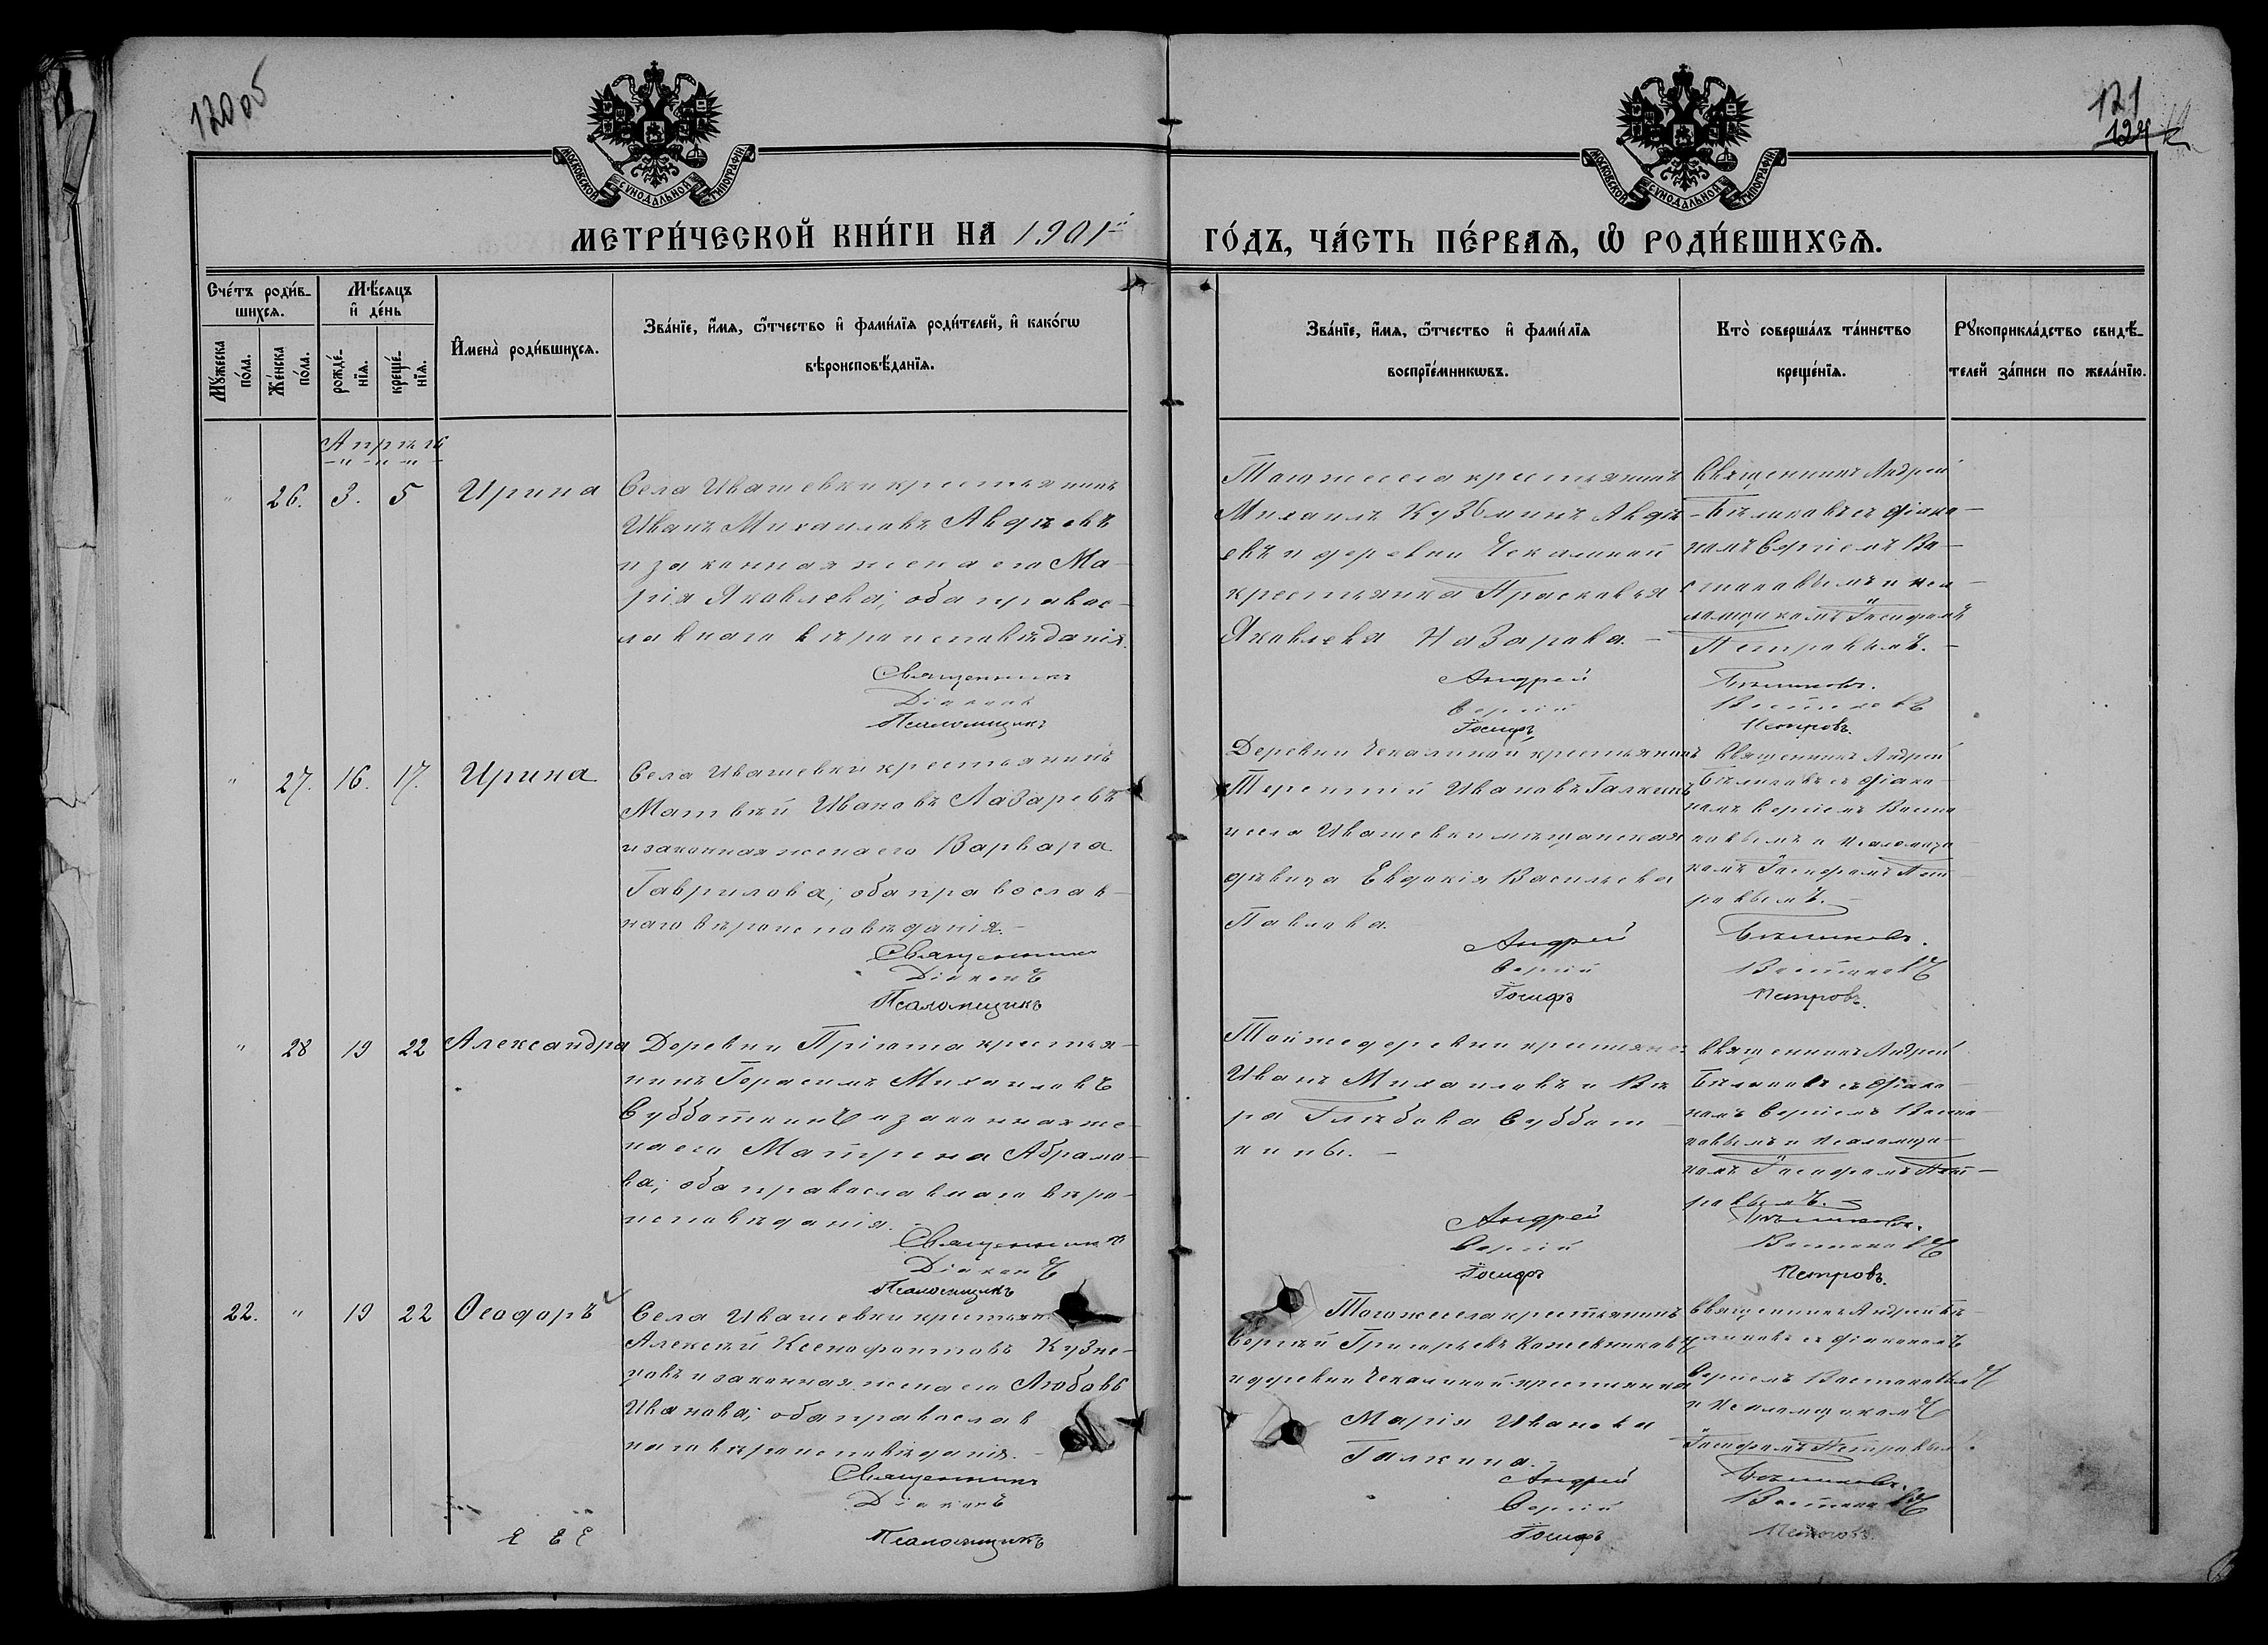 120об
121
124
МОСКОВСКОЙ СѴНОДАЛЬНОЙ ТИПОГРАФІИ
МОСКОВСКОЙ СѴНОДАЛЬНОЙ ТИПОГРАФІИ
МЕТРИ́ЧЕСКОЙ КНИ́ГИ НА 1901й
ГО́ДЪ, ЧА́СТЬ ПЕ́РВАѦ, Ѡ РОДИ́ВШИХСѦ.
Сче́тъ роди́в-
шихсѧ.
Му́жеска
по́ла.
Же́нска
по́ла.
Мѣ́сѧцъ
и҆ де́нь
рожде́-
нїѧ.
креще́-
нїѧ.
И҆мена̀ роди́вшихсѧ.
Зва́нїе, и҆́мѧ, ѻ҆́тчество и҆ фами́лїѧ роди́телей, и҆ како́гѡ
вѣроисповѣ́данїѧ.
Зва́нїе, и҆́мѧ, ѻ҆́тчество и҆ фами́лїѧ
воспрїе́мникѡвъ.
Кто̀ соверша́лъ та́инство
креще́нїѧ.
Рꙋкоприкла́дство свидѣ́-
телей за́писи по жела́нїю.
Апрѣль
" 26. 3. 5 Ирина
Села Ивашевки крестьянинъ
Иванъ Михаиловъ Авдѣевъ
и законная жена его Ма-
рія Яковлева; оба правос-
лавнаго вѣроисповѣданія.
Священникъ
Діаконъ
Псаломщикъ
Тогожесела крестьянинъ
Михаилъ Кузьминъ Авдѣ-
евъ и деревни Чекалиной
крестьянка Прасковья
Яковлева Назарова.
Андрей
Сергій
Іосифъ
Священникъ Андрей
Бѣляковъ съ діако-
номъ Сергіемъ Во-
стоковымъ и пса-
ломщикомъ Іосифомъ
Петровымъ.
Бѣляковъ.
Востоковъ
Петровъ.
" 27. 16. 17. Ирина
Села Ивашевки крестьянинъ
Матвѣй Ивановъ Лазаревъ
и законная жена его Варвара
Гаврилова; оба православ-
наго вѣроисповѣданія.
Священникъ
Діаконъ
Псаломщикъ
Деревни Чекалиной крестьянинъ
Терентій Ивановъ Галкинъ
и села Ивашевки мѣщанская
дѣвица Евдокія Васильева
Павлова.
Андрей
Сергій
Іосифъ
Священникъ Андрей
Бѣляковъ съ діако-
номъ Сергіемъ Восто-
ковымъ и псаломщи-
комъ Іосифомъ Пет-
ровымъ.
Бѣляковъ.
Востоковъ
Петровъ.
" 28 19 22 Александра
Деревни Пріюта крестья-
нинъ Герасимъ Михаиловъ
Субботинъ и законная же-
на его Матрена Абрамо-
ва; оба православнаго вѣро-
исповѣданія.
Священникъ
Діаконъ
Псаломщикъ
Той же деревни крестьяне
Иванъ Михаиловъ и Вѣ-
ра Глѣбова Суббот-
ины.
Андрей
Сергій
Іосифъ
Священникъ Андрей
Бѣляковъ съ діако-
номъ Сергіемъ Восто-
ковымъ и псаломщи-
комъ Іосифомъ Пет-
ровымъ.
Бѣляковъ.
Востоковъ
Петровъ.
22. " 19 22 Ѳеодоръ
Села Ивашевки крестьян
Алексѣй Ксенофонтовъ Кузне-
цовъ и законная жена его Любовь
Иванова; оба православ
наго вѣроисповѣданія.
Священникъ
Діаконъ
Псаломщикъ
Тогожесела крестьянинъ
Сергѣй Григорьевъ Кожевниковъ
и деревни Чекалиной крестьянка
Марія Иванова
Галкина.
Андрей
Сергій
Іосифъ
Священникъ Андрей Бѣ-
ляковъ съ діакономъ
Сергіемъ Востоковымъ
и псаломщикомъ
Іосифомъ Петровымъ.
Бѣляковъ.
Востоковъ
Петровъ.